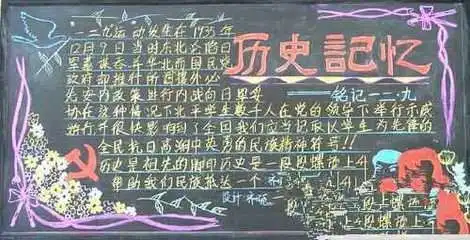 历史記忆
——铭记一二·九
一二九运动发生在1935年
12月9日当时东北已沦陷日
军蓄谋吞并华北而国民党
政府却推行所谓攘外必
先安内政策进行内战向日妥
协在这种情况下北平学生数千人在党的领导下举行示威
游行并很快影响到了全国我们应当记取以学生为先锋的
全民抗日高潮中英勇的民族精神符号!!
历史是祖先的脚印历史是一段段螺
帮助我们民族抵达一个
设计